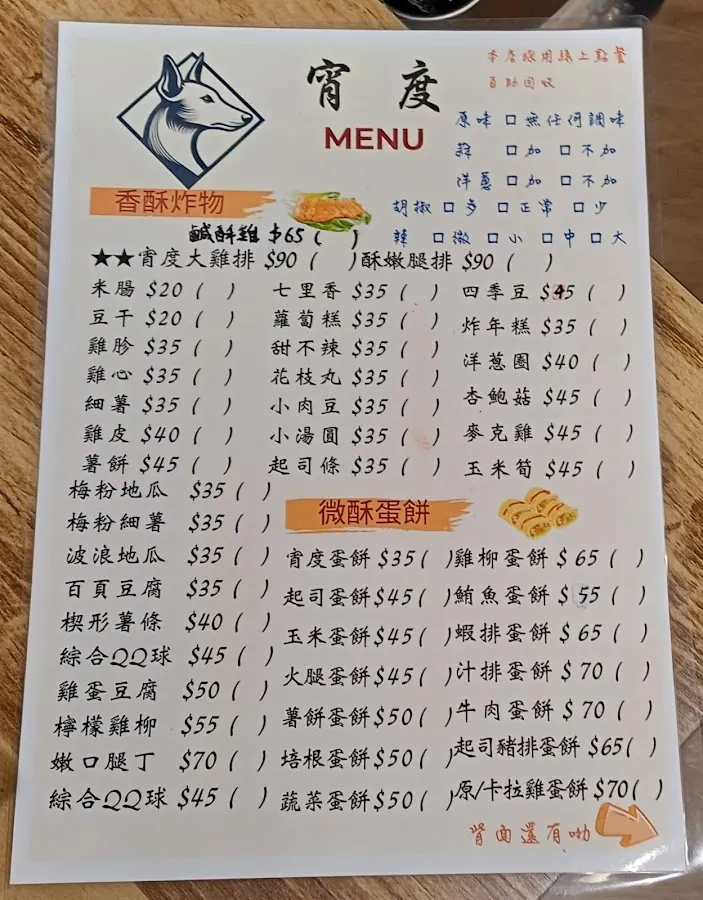 宵度
MENU
本店採用線上點餐
自助回收
原味 □ 無任何調味
蒜 □ 加 □ 不加
洋蔥 □ 加 □ 不加
胡椒 □ 多 □ 正常 □ 少
辣 □ 微 □ 小 □ 中 □ 大
香酥炸物
鹹酥雞 $65 ( )
★★宵度大雞排 $90 ( ) 酥嫩腿排 $90 ( )
米腸 $20 ( ) 七里香 $35 ( ) 四季豆 $45 ( )
豆干 $20 ( ) 蘿蔔糕 $35 ( ) 炸年糕 $35 ( )
雞胗 $35 ( ) 甜不辣 $35 ( ) 洋蔥圈 $40 ( )
雞心 $35 ( ) 花枝丸 $35 ( ) 杏鮑菇 $45 ( )
細薯 $35 ( ) 小肉豆 $35 ( ) 麥克雞 $45 ( )
雞皮 $40 ( ) 小湯圓 $35 ( ) 玉米筍 $45 ( )
薯餅 $45 ( ) 起司條 $35 ( )
梅粉地瓜 $35 ( )
梅粉細薯 $35 ( )
波浪地瓜 $35 ( )
百頁豆腐 $35 ( )
楔形薯條 $40 ( )
綜合QQ球 $45 ( )
雞蛋豆腐 $50 ( )
檸檬雞柳 $55 ( )
嫩口腿丁 $70 ( )
綜合QQ球 $45 ( )
微酥蛋餅
宵度蛋餅 $35( ) 雞柳蛋餅 $65 ( )
起司蛋餅$45( ) 鮪魚蛋餅 $55 ( )
玉米蛋餅$45( ) 蝦排蛋餅 $65 ( )
火腿蛋餅$45( ) 汁排蛋餅 $70 ( )
薯餅蛋餅$50( ) 牛肉蛋餅 $70 ( )
培根蛋餅$50( ) 起司豬排蛋餅 $65( )
蔬菜蛋餅$50( ) 原/卡拉雞蛋餅 $70( )
背面還有呦